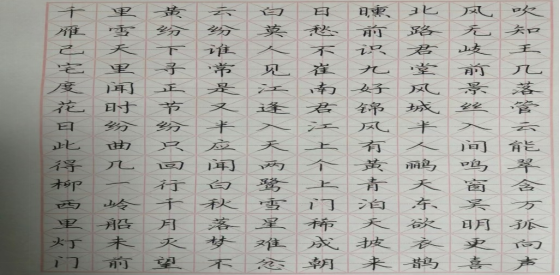 千里黄云白日曛北风吹
雁雪纷纷莫愁前路无知
己天下谁人不识君岐王
宅里寻常见崔九堂前几
度闻正是江南好风景落
花时节又逢君锦城丝管
日纷纷半入江风半入云
此曲只应天上有人间能
得几回闻两个黄鹂鸣翠
柳一行白鹭上青天窗含
西岭千秋雪门泊东吴万
里船月落星稀天欲明孤
灯未灭梦难成披衣更向
门前望不忿朝来鹊喜声